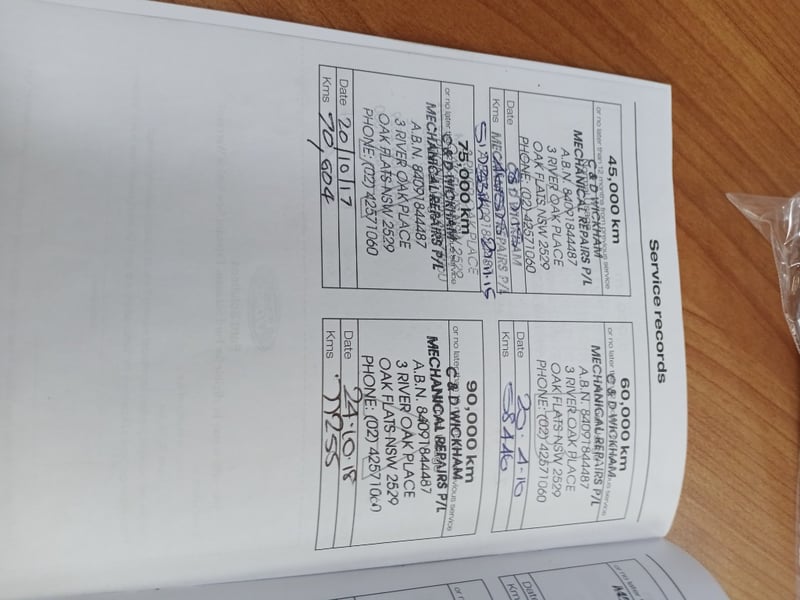 Service records
45,000 km
or no later than 12 months from previous service
C & D WICKHAM
MECHANICAL REPAIRS P/L
A.B.N. 84091844487
3 RIVER OAK PLACE
OAK FLATS NSW 2529
PHONE: (02) 42571060
Date
Kms
60,000 km
C & D WICKHAM
MECHANICAL REPAIRS P/L
A.B.N. 84091844487
3 RIVER OAK PLACE
OAK FLATS NSW 2529
PHONE: (02) 42571060
Date 20.4.16
Kms 58446
75,000 km
C & D WICKHAM
MECHANICAL REPAIRS P/L
A.B.N. 84091844487
3 RIVER OAK PLACE
OAK FLATS NSW 2529
PHONE: (02) 42571060
Date 20/10/17
Kms 70,604
90,000 km
or no later
C & D WICKHAM
MECHANICAL REPAIRS P/L
A.B.N. 84091844487
3 RIVER OAK PLACE
OAK FLATS NSW 2529
PHONE: (02) 42571060
Date 24.10.18
Kms 77255